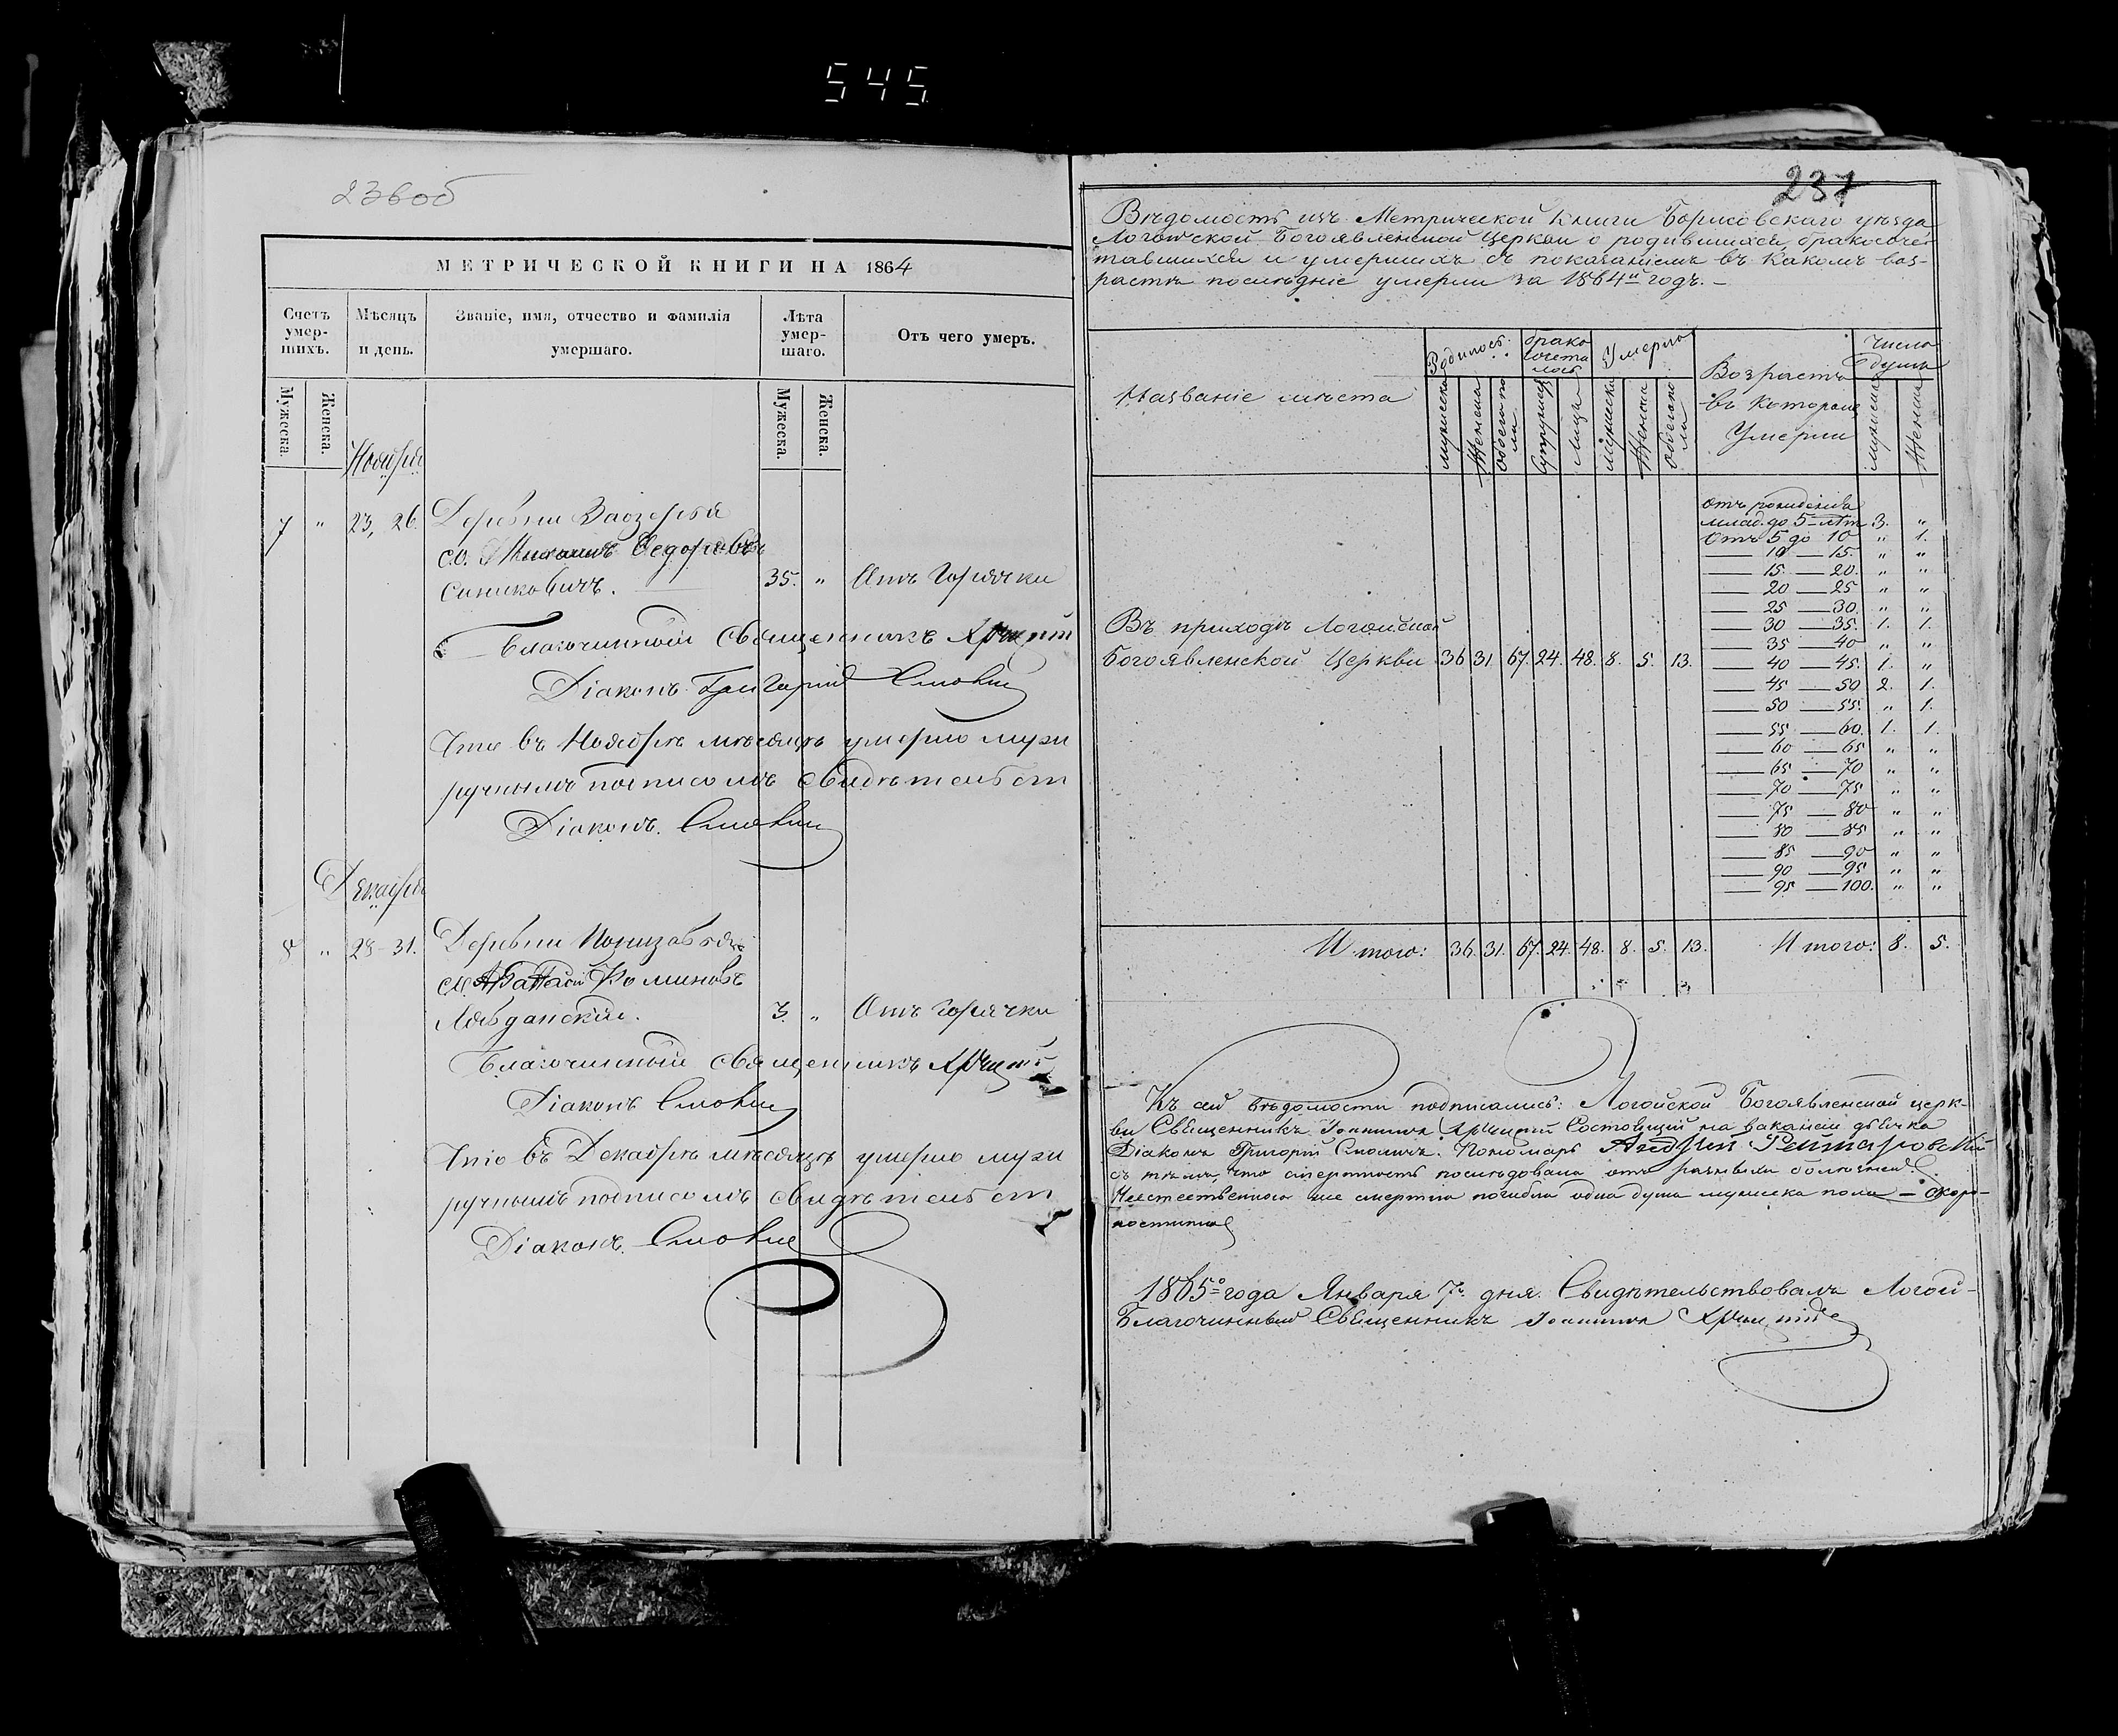 545
236 об
МЕТРИЧЕСКОЙ КНИГИ НА 1864
Счетъ умер-шихъ.
Мѣсяцъ и день.
Званіе, имя, отчество и фамилія умершаго.
Лѣта умер-шаго.
Отъ чего умеръ.
Мужеска.
Женска.
Мужеска.
Женска.
Ноября
7 " 23, 26. Деревни Заозерья
с.о. Ѳедоровъ
Синиковичъ. 35. " Отъ Горячки
Благочинный Священникъ
Діаконъ Григорій
Что въ Ноябрѣ мѣсяцѣ умерло муж
ручнымъ подписомъ свидѣтельст
Діаконъ
Декабря
8 " 28-31. Деревни
Фоминовъ
3. " Отъ Горячки
Благочинный Священникъ
Діаконъ
Что въ Декабрѣ мѣсяцѣ умерло муж
ручнымъ подписомъ свидѣтельст
Діаконъ
237
Вѣдомость изъ Метрической Книги Борисовскаго уѣзда
Логойской Богоявленской Церкви о родившихся, бракосоче-
тавшихся и умершихъ съ показаніемъ въ какомъ воз-
растѣ послѣдніе умерли за 1864й годъ. –
Названіе мѣста
Родилось
брако сочета лось
Умерло
Возрастъ въ которомъ Умерли
Число душъ
мужеска
Женска
обоего по ла
Супружест
Лицъ
мужеска
Женска
обоего по ла
мужеска
Женска
отъ рожденія
млад. до 5-лѣт 3. "
отъ 5 до 10 " 1.
— 10 — 15. " "
— 15. — 20. " "
— 20 — 25 " "
— 25 — 30. " "
— 30 — 35. 1. 1.
— 35 — 40 " "
— 40 — 45. 1. "
— 45 — 50 2. 1.
— 50 — 55. " 1.
— 55 — 60. 1. 1.
— 60 — 65 " "
— 65 — 70 " "
— 70 — 75 " "
— 75 — 80 " "
— 80 — 85 " "
— 85 — 90 " "
— 90 — 95 " "
— 95 — 100. " "
Въ приходѣ Логойской
Богоявленской Церкви 36 31. 67. 24. 48. 8. 5. 13.
Итого: 36. 31. 67. 24. 48. 8. 5. 13. Итого: 8. 5.
Къ сей вѣдомости подписались: Логойской Богоявленской церк-
ви Священникъ Іоаннъ Состоящій на вакансіи дьячка
Діаконъ Григорій Пономарь Андрей
съ тѣмъ, что смертность послѣдовала отъ разныхъ болѣзней.
Неестественною же смертію погибла одна душа мужеска пола – скоро-
постижно
1865го года Января 7. дня. Свидѣтельствовалъ Логой-
Благочинный Священникъ Іоаннъ